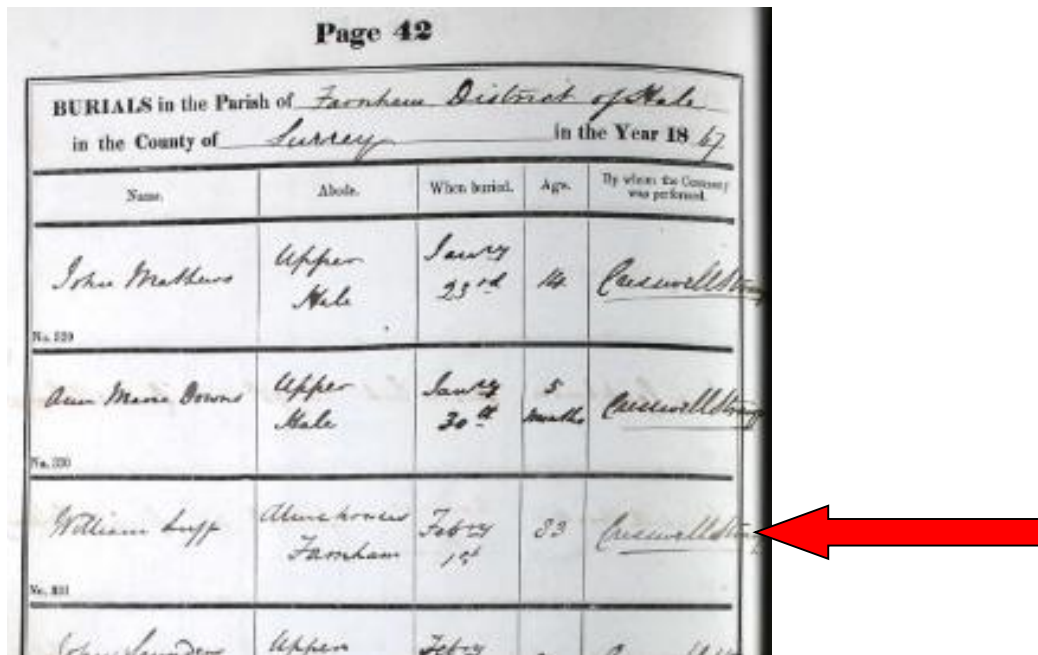 Page 42
BURIALS in the Parish of Farnham District of Hale
in the County of Surrey in the Year 1867
Name. Abode. When buried. Age. By whom the Ceremony was performed.
John Mathews Upper Hale Janry 23rd 14 Cresswell
No. 329
Ann Maria Downs Upper Hale Janry 30th 5 months Cresswell
No. 330
William Luff Almshouses Farnham Febry 1st 83 Cresswell
No. 331
John Saunders Upper Febry